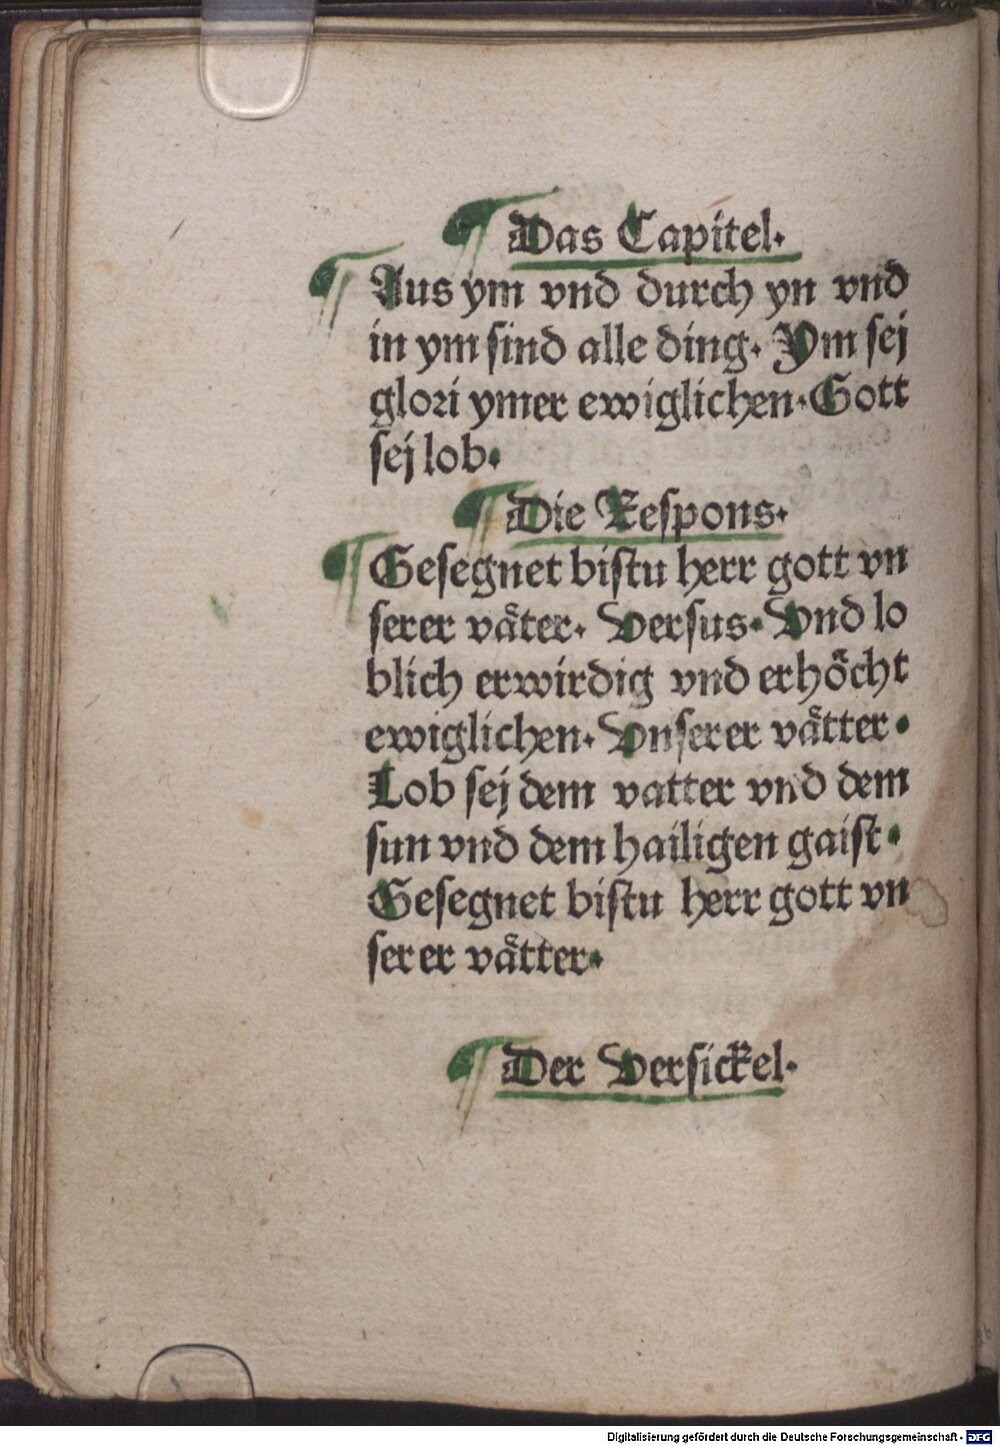 ¶ Das Capitel.
¶ Aus ym vnd durch yn vnd
in ym sind alle ding. Ym sej
glori ymer ewiglichen. Gott
sej lob.
¶ Die Respons.
¶ Gesegnet bistu herr gott vn
serer vaͤter. Versus. Vnd lo
blich erwirdig vnd erhoͤcht
ewiglichen. Vnserer vaͤtter.
Lob sej dem vatter vnd dem
sun vnd dem hailigen gaist.
Gesegnet bistu herr gott vn
serer vaͤtter.
¶ Der Versickel.
Digitalisierung gefördert durch die Deutsche Forschungsgemeinschaft - DFG